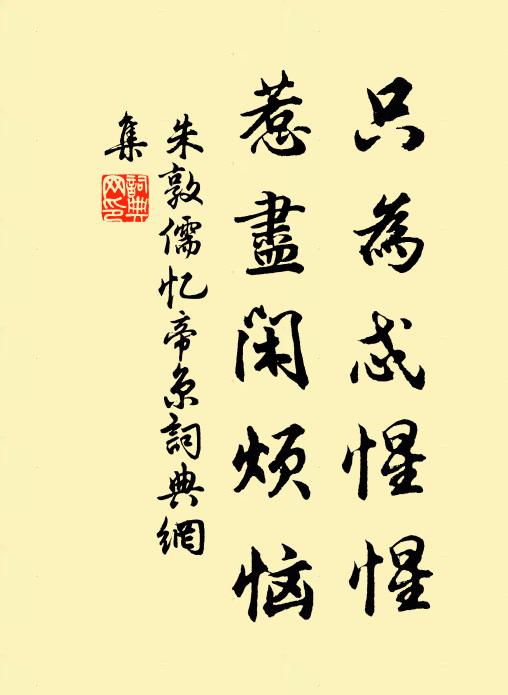 只為忒惺惺
惹盡閑煩恼
朱敦儒忆帝京詞典網
集
詞典
网印